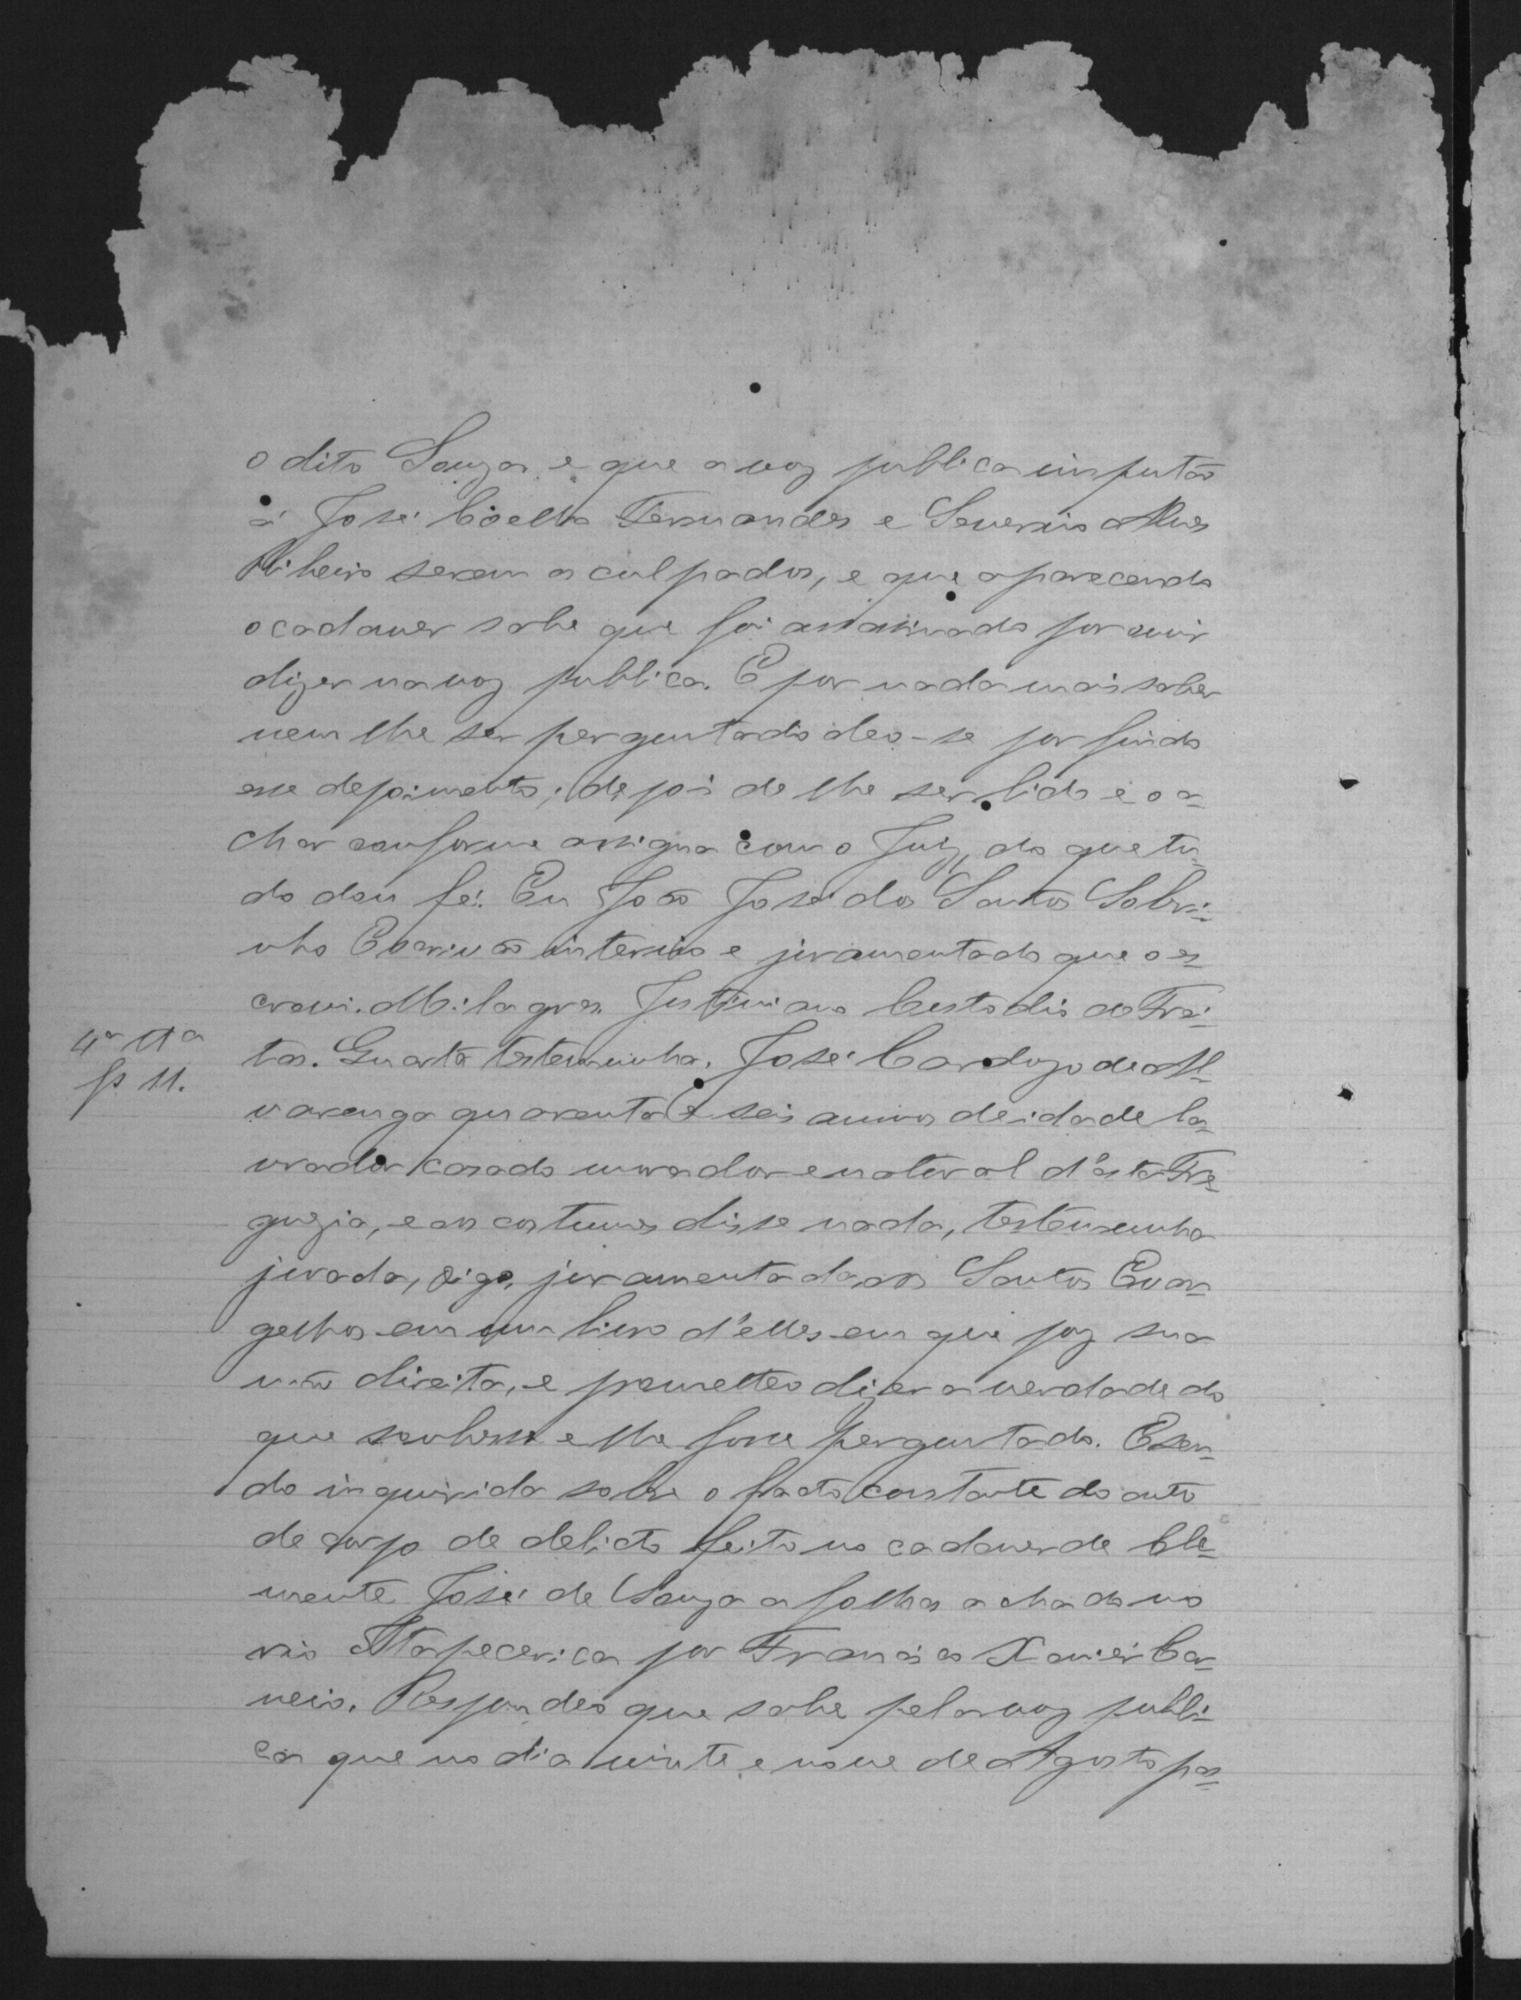 o dito Souza e que a voz publica imputão
á José Coelho Fernandes e Severino Alves
Ribeiro serem os culpados, e que aparecendo
o cadaver sabe que foi assassinado por ouvir
dizer na voz publica. E por nada mais saber
nem lhe ser perguntado deo-se por findo
esse depoimento; depois de lhe ser lido e o a=
char conforme assigna com o Juiz, do que tu=
do dou fé. Eu João José dos Santos Sobri=
nho Escrivão interino e juramentado que o es=
crevi. Milagres. Justiniano Custodio de Frei=
tas. Quarta testemunha. José Cardozo de Al=
4ª tta
fs 11.
varenga quarenta e seis annos de idade la=
vrador casado morador e natural d'esta Fre=
guezia, e aos costumes disse nada, testemunha
jurada, digo, juramentada aos Santos Evan=
gelhos em um livro d'elles em que poz sua
mão direita, e prometteo dizer a verdade do
que soubesse e lhe fosse perguntado. E sen=
do inquirida sobre o facto constante do auto
de corpo de delicto feito no cadaver de Cle=
mente José de Souza a folhas achado no
rio Itapecerica por Francisco Xavier Car=
neiro. Respondeo que sabe pela voz publi=
ca que no dia vinte e nove de Agosto pas=